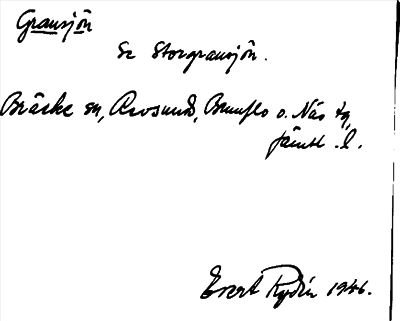 Gransjön
Se Storgransjön.
Bräcke sn, Revsunds, Brunflo o. Näs tg,
Jämtl. l.
Evert Rydén 1946.